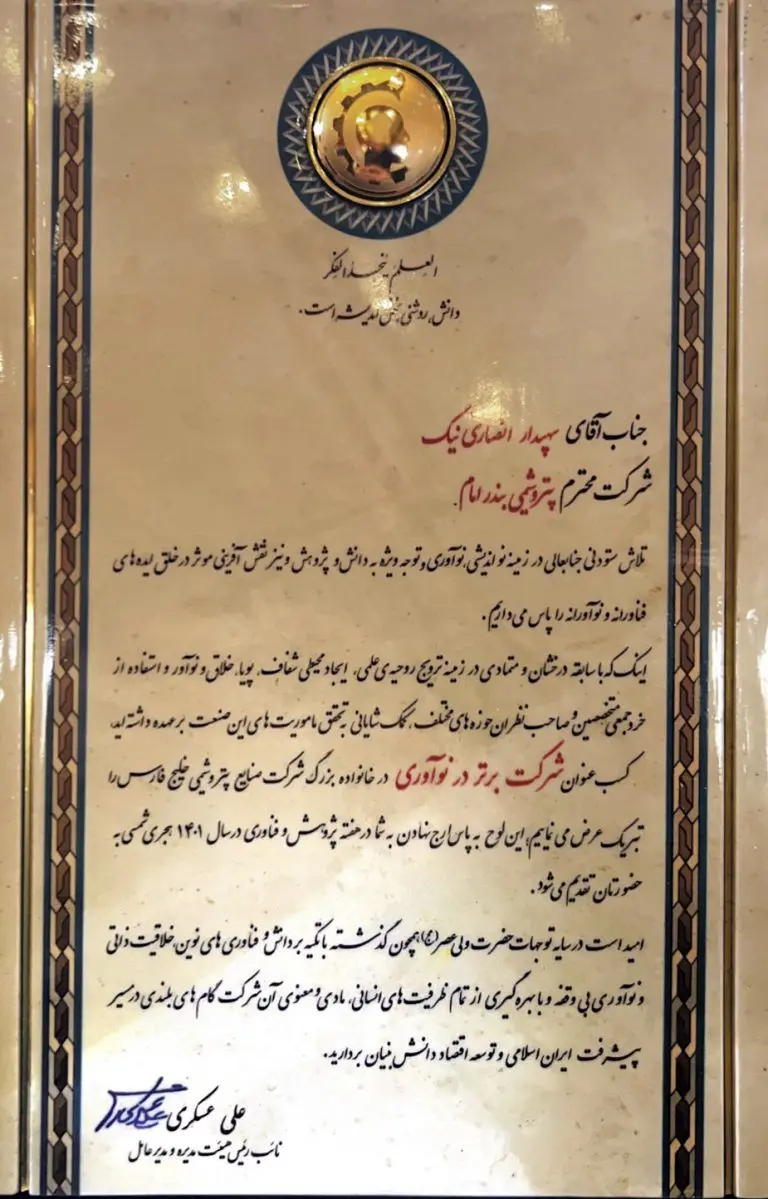 العلم ینجد الفکر
دانش، روشنی بخش اندیشه است.
جناب آقای سپهدار انصاری نیک
شرکت محترم پتروشیمی بندر امام
تلاش ستودنی جنابعالی در زمینه نو اندیشی، نوآوری و توجه ویژه به دانش و پژوهش و نیز نقش آفرینی موثر در خلق ایده های
فناورانه و نوآورانه را پاس می داریم.
اینک که با سابقه درخشان و متمادی در زمینه ترویج روحیه ی علمی، ایجاد محیطی شفاف، پویا، خلاق و نوآور و استفاده از
خرد جمعی متخصصین و صاحب نظران حوزه های مختلف، کمک شایانی به تحقق ماموریت های این صنعت بر عهده داشته اید،
کسب عنوان شرکت برتر در نوآوری در خانواده بزرگ شرکت صنایع پتروشیمی خلیج فارس را
تبریک عرض می نماییم؛ این لوح به پاس ارج نهادن به شما در هفته پژوهش و فناوری در سال ۱۴۰۱ هجری شمسی به
حضورتان تقدیم می شود.
امید است در سایه توجهات حضرت ولی عصر(عج) همچون گذشته با تکیه بر دانش و فناوری های نوین، خلاقیت ذاتی
و نوآوری بی وقفه و با بهره گیری از تمام ظرفیت های انسانی، مادی و معنوی آن شرکت گام های بلندی در مسیر
پیشرفت ایران اسلامی و توسعه اقتصاد دانش بنیان بردارید.
علی عسکری
نائب رئیس هیئت مدیره و مدیر عامل